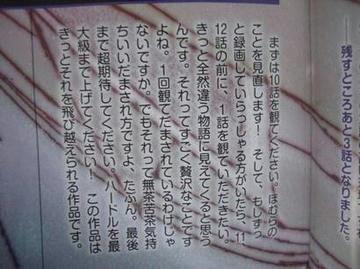 ――残すところあと3話となりました。
まずは10話を観てください。ほむらの
ことを見直します！ そして、もしずっ
と録画していらっしゃる方がいたら、11、
12話の前に、1話を観ていただきたい。
きっと全然違う物語に見えてくると思う
んです。それってすごく贅沢なことです
よね。1回観てだまされているわけじゃ
ないですか。でもそれって無茶苦茶気持
ちいいだまされ方ですよ、たぶん。最後
まで超期待してください。ハードルを最
大級まで上げてください！ この作品は
きっとそれを飛び越えられる作品です。